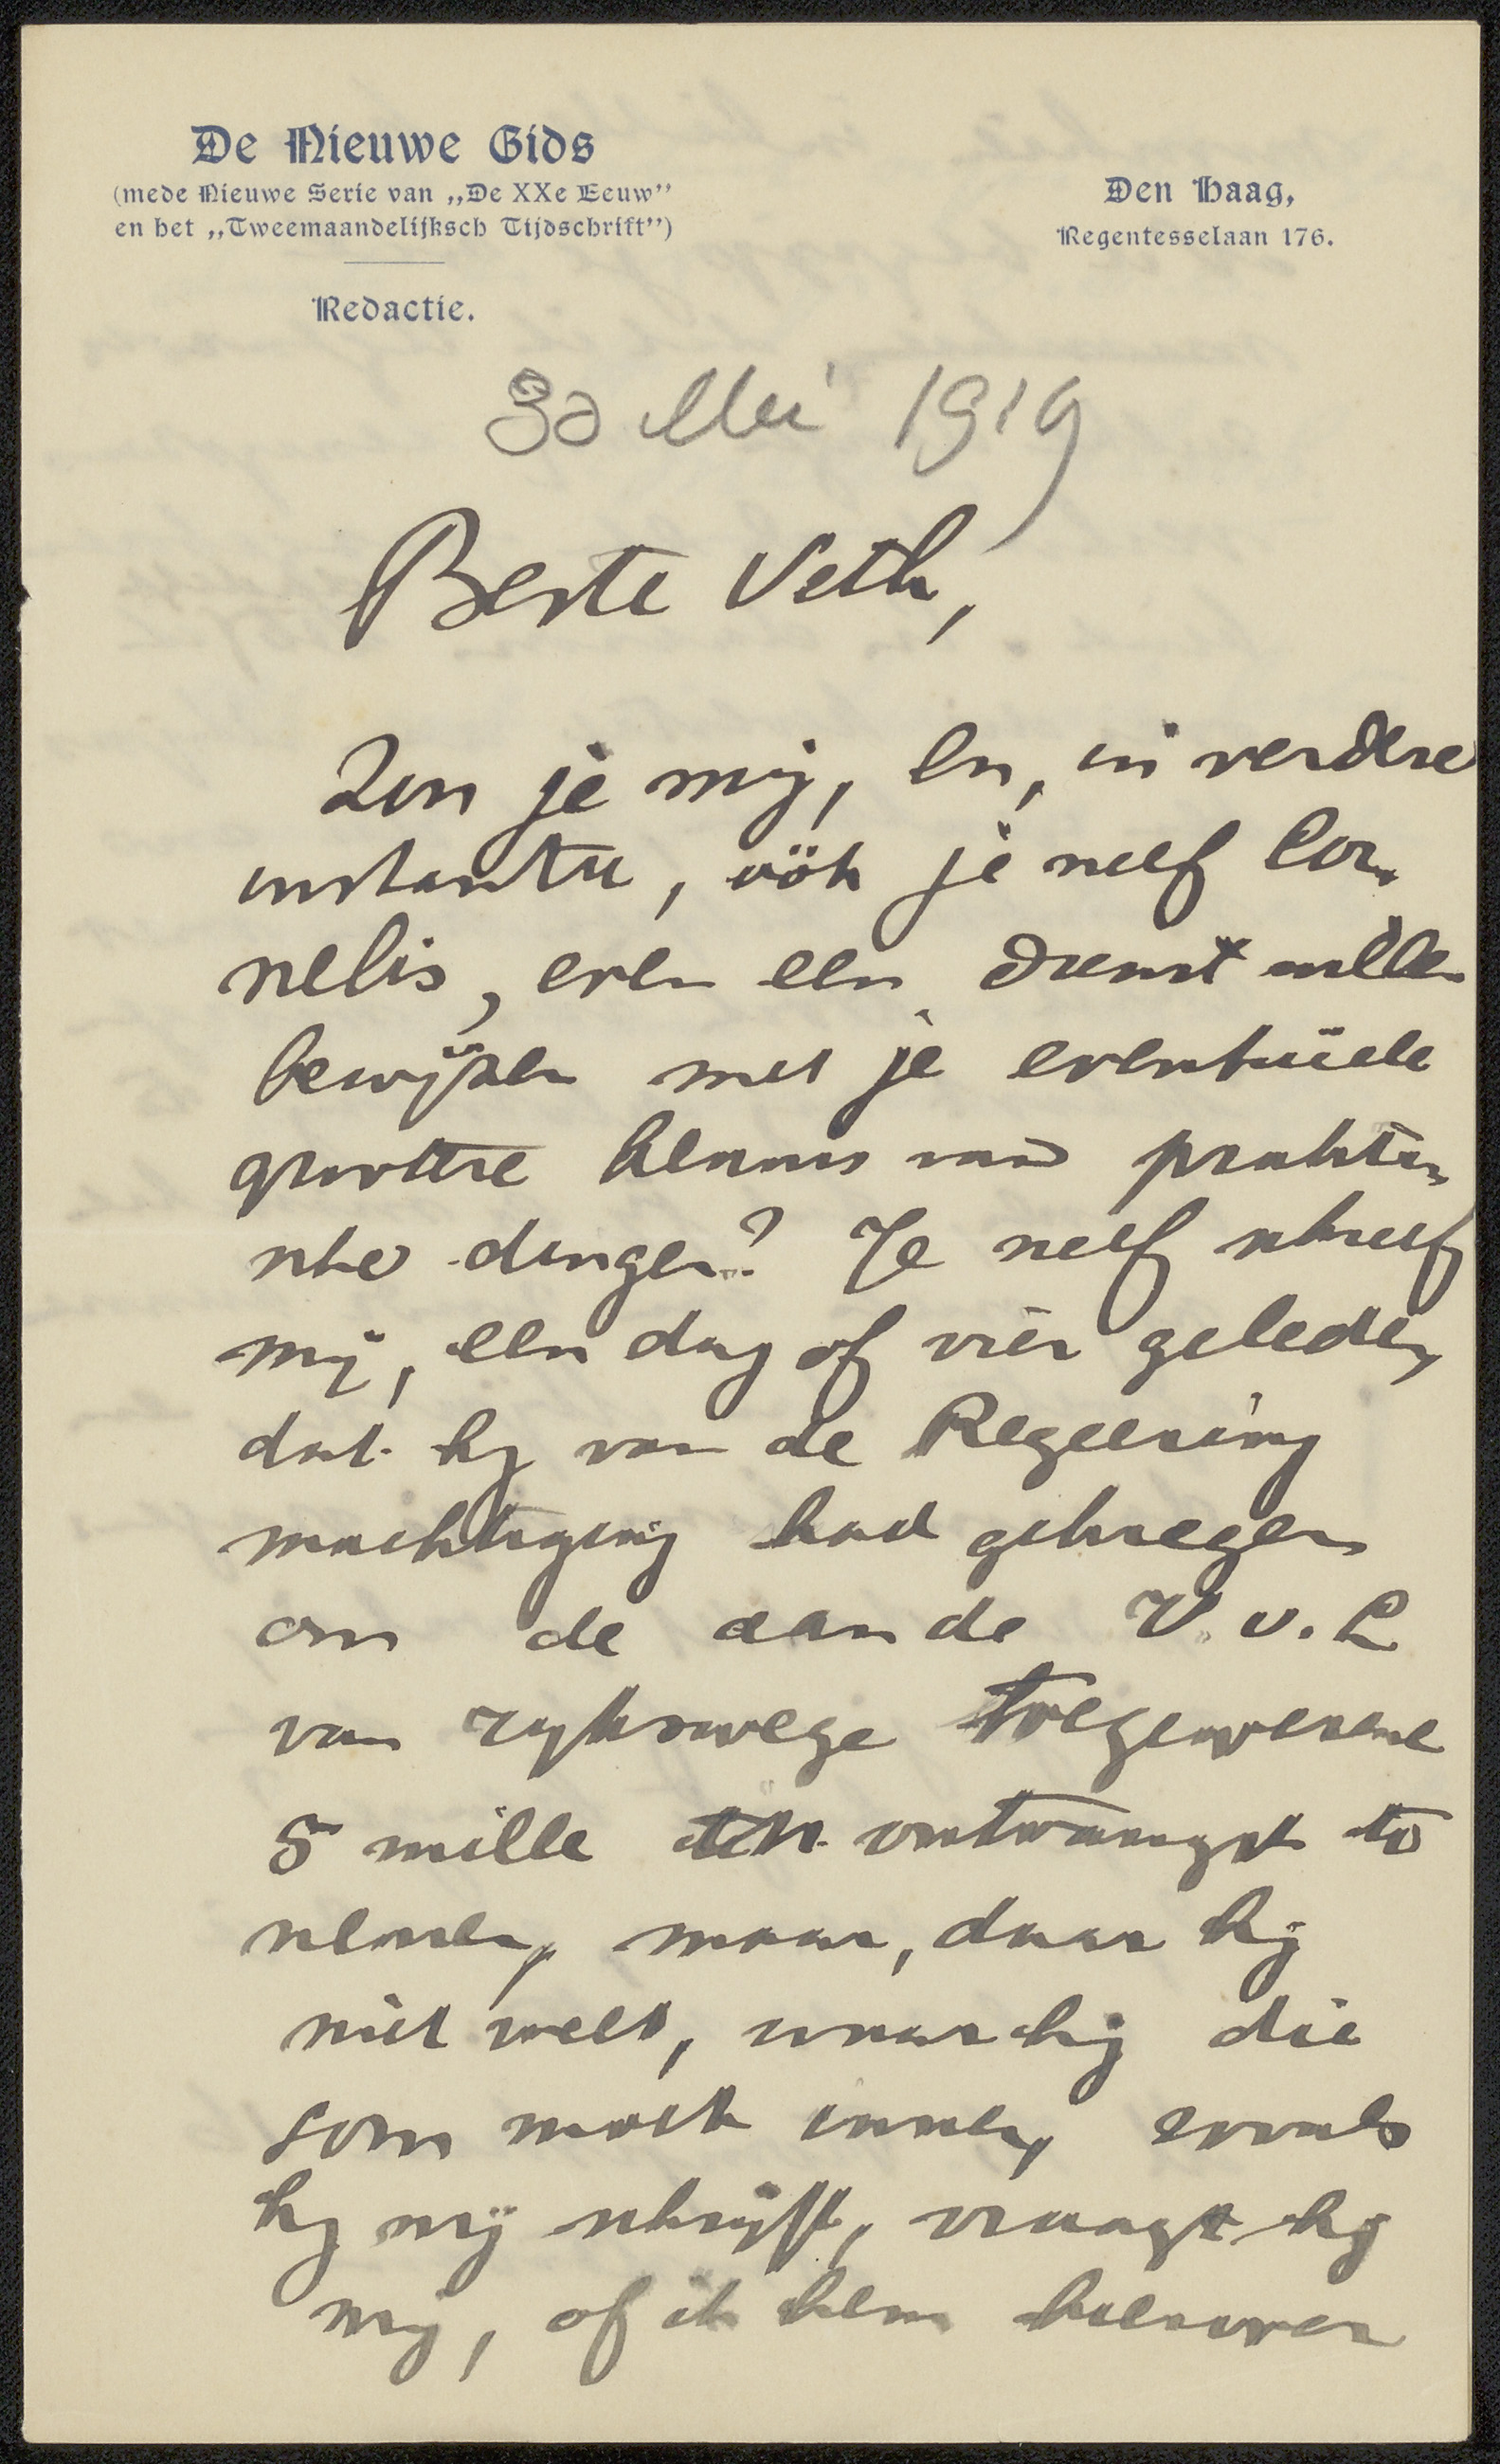 De Nieuwe Gids
(mede Nieuwe Serie van „De XXe Eeuw”
en het „Tweemaandelijksch Tijdschrift”)
Redactie.
Den Haag,
Regentesselaan 176.
30 Mei 1919
Beste Veth,
Zou je mij, en, in verdere
instantie, óók je neef Cor-
nelis, even een dienst willen
bewijzen met je eventuëele
grootere kennis van prakti-
sche dingen? Je neef schreef
mij, een dag of vier geleden,
dat hij van de Regeering
machtiging had gekregen
om de aan de V.v.L
van rijkswege toegewezene
5 mille in ontvangst te
nemen, maar, daar hij
niet weet, waar hij die
som moet innen, zooals
hij mij schrijft, vraagt hij
mij, of ik hem hierover